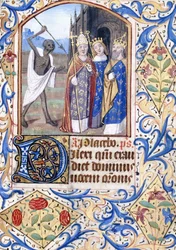 Ad placebo. ps.
Dilexi qm̄ exau
diet dominus
vocem orōnis